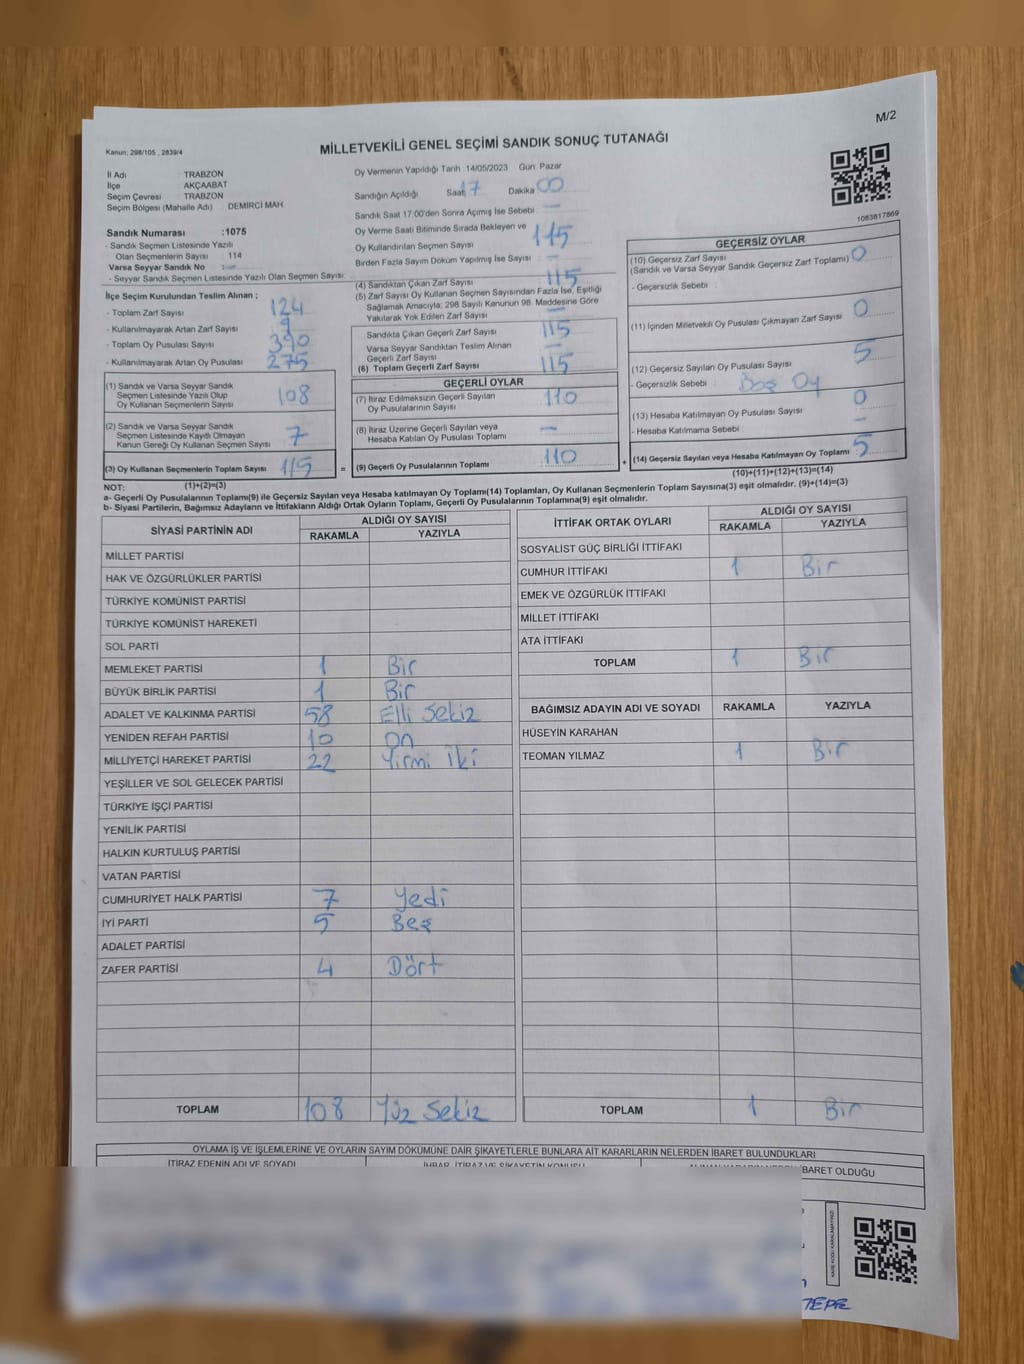 M/2
Kanun; 298/105 , 2839/4
MİLLETVEKİLİ GENEL SEÇİMİ SANDIK SONUÇ TUTANAĞI
İl Adı TRABZON
İlçe AKÇAABAT
Seçim Çevresi TRABZON
Seçim Bölgesi (Mahalle Adı) DEMİRCİ MAH.
Sandık Numarası :1075
- Sandık Seçmen Listesinde Yazılı
Olan Seçmenlerin Sayısı 114
Varsa Seyyar Sandık No :
- Seyyar Sandık Seçmen Listesinde Yazılı Olan Seçmen Sayısı:
Oy Vermenin Yapıldığı Tarih 14/05/2023 Gün: Pazar
Sandığın Açıldığı Saat 17 Dakika 00
Sandık Saat 17:00'den Sonra Açımış İse Sebebi —
Oy Verme Saati Bitiminde Sırada Bekleyen ve
Oy Kullandırılan Seçmen Sayısı 115
Birden Fazla Sayım Döküm Yapılmış İse Sayısı —
1083817869
İlçe Seçim Kurulundan Teslim Alınan ;
- Toplam Zarf Sayısı 124
- Kullanılmayarak Artan Zarf Sayısı 9
- Toplam Oy Pusulası Sayısı 390
- Kullanılmayarak Artan Oy Pusulası 275
(1) Sandık ve Varsa Seyyar Sandık
Seçmen Listesinde Yazılı Olup
Oy Kullanan Seçmenlerin Sayısı 108
(2) Sandık ve Varsa Seyyar Sandık
Seçmen Listesinde Kayıtlı Olmayan
Kanun Gereği Oy Kullanan Seçmen Sayısı 7
(3) Oy Kullanan Seçmenlerin Toplam Sayısı 115 =
(4) Sandıktan Çıkan Zarf Sayısı 115
(5) Zarf Sayısı Oy Kullanan Seçmen Sayısından Fazla İse, Eşitliği
Sağlamak Amacıyla, 298 Sayılı Kanunun 98. Maddesine Göre
Yakılarak Yok Edilen Zarf Sayısı —
Sandıkta Çıkan Geçerli Zarf Sayısı 115
Varsa Seyyar Sandıktan Teslim Alınan
Geçerli Zarf Sayısı —
(6) Toplam Geçerli Zarf Sayısı 115
GEÇERLİ OYLAR
(7) İtiraz Edilmeksizin Geçerli Sayılan
Oy Pusulalarının Sayısı 110
(8) İtiraz Üzerine Geçerli Sayılan veya
Hesaba Katılan Oy Pusulası Toplamı —
(9) Geçerli Oy Pusulalarının Toplamı 110 +
GEÇERSİZ OYLAR
(10) Geçersiz Zarf Sayısı 0
(Sandık ve Varsa Seyyar Sandık Geçersiz Zarf Toplamı)
- Geçersizlik Sebebi
(11) İçinden Milletvekili Oy Pusulası Çıkmayan Zarf Sayısı 0
(12) Geçersiz Sayılan Oy Pusulası Sayısı 5
- Geçersizlik Sebebi Boş Oy
(13) Hesaba Katılmayan Oy Pusulası Sayısı 0
- Hesaba Katılmama Sebebi —
(14) Geçersiz Sayılan veya Hesaba Katılmayan Oy Toplamı 5
NOT: (1)+(2)=(3)
(10)+(11)+(12)+(13)=(14)
a- Geçerli Oy Pusulalarının Toplamı(9) ile Geçersiz Sayılan veya Hesaba katılmayan Oy Toplamı(14) Toplamları, Oy Kullanan Seçmenlerin Toplam Sayısına(3) eşit olmalıdır. (9)+(14)=(3)
b- Siyasi Partilerin, Bağımsız Adayların ve İttifakların Aldığı Ortak Oyların Toplamı, Geçerli Oy Pusulalarının Toplamına(9) eşit olmalıdır.
SİYASİ PARTİNİN ADI ALDIĞI OY SAYISI
RAKAMLA YAZIYLA
MİLLET PARTİSİ
HAK VE ÖZGÜRLÜKLER PARTİSİ
TÜRKİYE KOMÜNİST PARTİSİ
TÜRKİYE KOMÜNİST HAREKETİ
SOL PARTİ
MEMLEKET PARTİSİ 1 Bir
BÜYÜK BİRLİK PARTİSİ 1 Bir
ADALET VE KALKINMA PARTİSİ 58 Elli Sekiz
YENİDEN REFAH PARTİSİ 10 On
MİLLİYETÇİ HAREKET PARTİSİ 22 Yirmi İki
YEŞİLLER VE SOL GELECEK PARTİSİ
TÜRKİYE İŞÇİ PARTİSİ
YENİLİK PARTİSİ
HALKIN KURTULUŞ PARTİSİ
VATAN PARTİSİ
CUMHURİYET HALK PARTİSİ 7 Yedi
İYİ PARTİ 5 Beş
ADALET PARTİSİ
ZAFER PARTİSİ 4 Dört
TOPLAM 108 Yüz Sekiz
İTTİFAK ORTAK OYLARI ALDIĞI OY SAYISI
RAKAMLA YAZIYLA
SOSYALİST GÜÇ BİRLİĞİ İTTİFAKI
CUMHUR İTTİFAKI 1 Bir
EMEK VE ÖZGÜRLÜK İTTİFAKI
MİLLET İTTİFAKI
ATA İTTİFAKI
TOPLAM 1 Bir
BAĞIMSIZ ADAYIN ADI VE SOYADI RAKAMLA YAZIYLA
HÜSEYİN KARAHAN
TEOMAN YILMAZ 1 Bir
TOPLAM 1 Bir
OYLAMA İŞ VE İŞLEMLERİNE VE OYLARIN SAYIM DÖKÜMÜNE DAİR ŞİKAYETLERLE BUNLARA AİT KARARLARIN NELERDEN İBARET BULUNDUKLARI
İTİRAZ EDENİN ADI VE SOYADI İHBAR, İTİRAZ VE ŞİKAYETİN KONUSU
İBARET OLDUĞU
TEPE